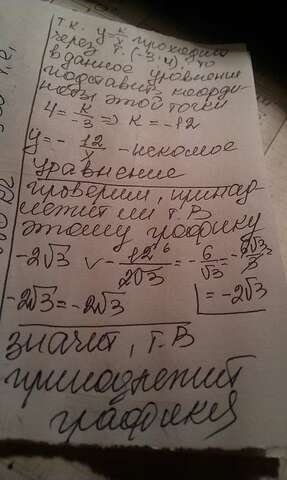 т.к. y = k/x проходит
через т. (-3; 4), то
в данное уравнение
подставить коорди-
наты этой точки
4 = k/-3 ⇒ k = -12
y = - 12/x - искомое
уравнение
проверим, принад-
лежит ли т. В
этому графику
-2√3 ∨ - 12 6/2√3 = - 6/√3 = - 6√3 2/3
-2√3 = -2√3 = -2√3
значит, т. В
принадлежит
графику